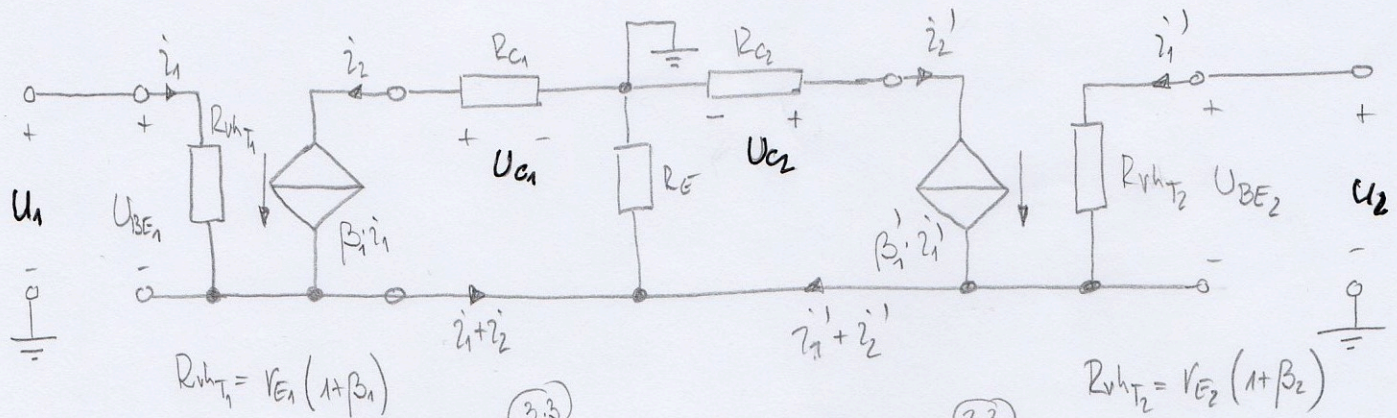 i₁ i₂ R_C₁ R_C₂ i₂' i₁'
+ + R_vh_T₁ + - - + + +
U₁ U_BE₁ U_C₁ R_E U_C₂ R_vh_T₂ U_BE₂ U₂
β₁·i₁ β₁'·i₁'
- - - -
i₁+i₂ i₁'+i₂'
R_vh_T₁ = r_E₁ (1+β₁) R_vh_T₂ = r_E₂ (1+β₂)
3.3